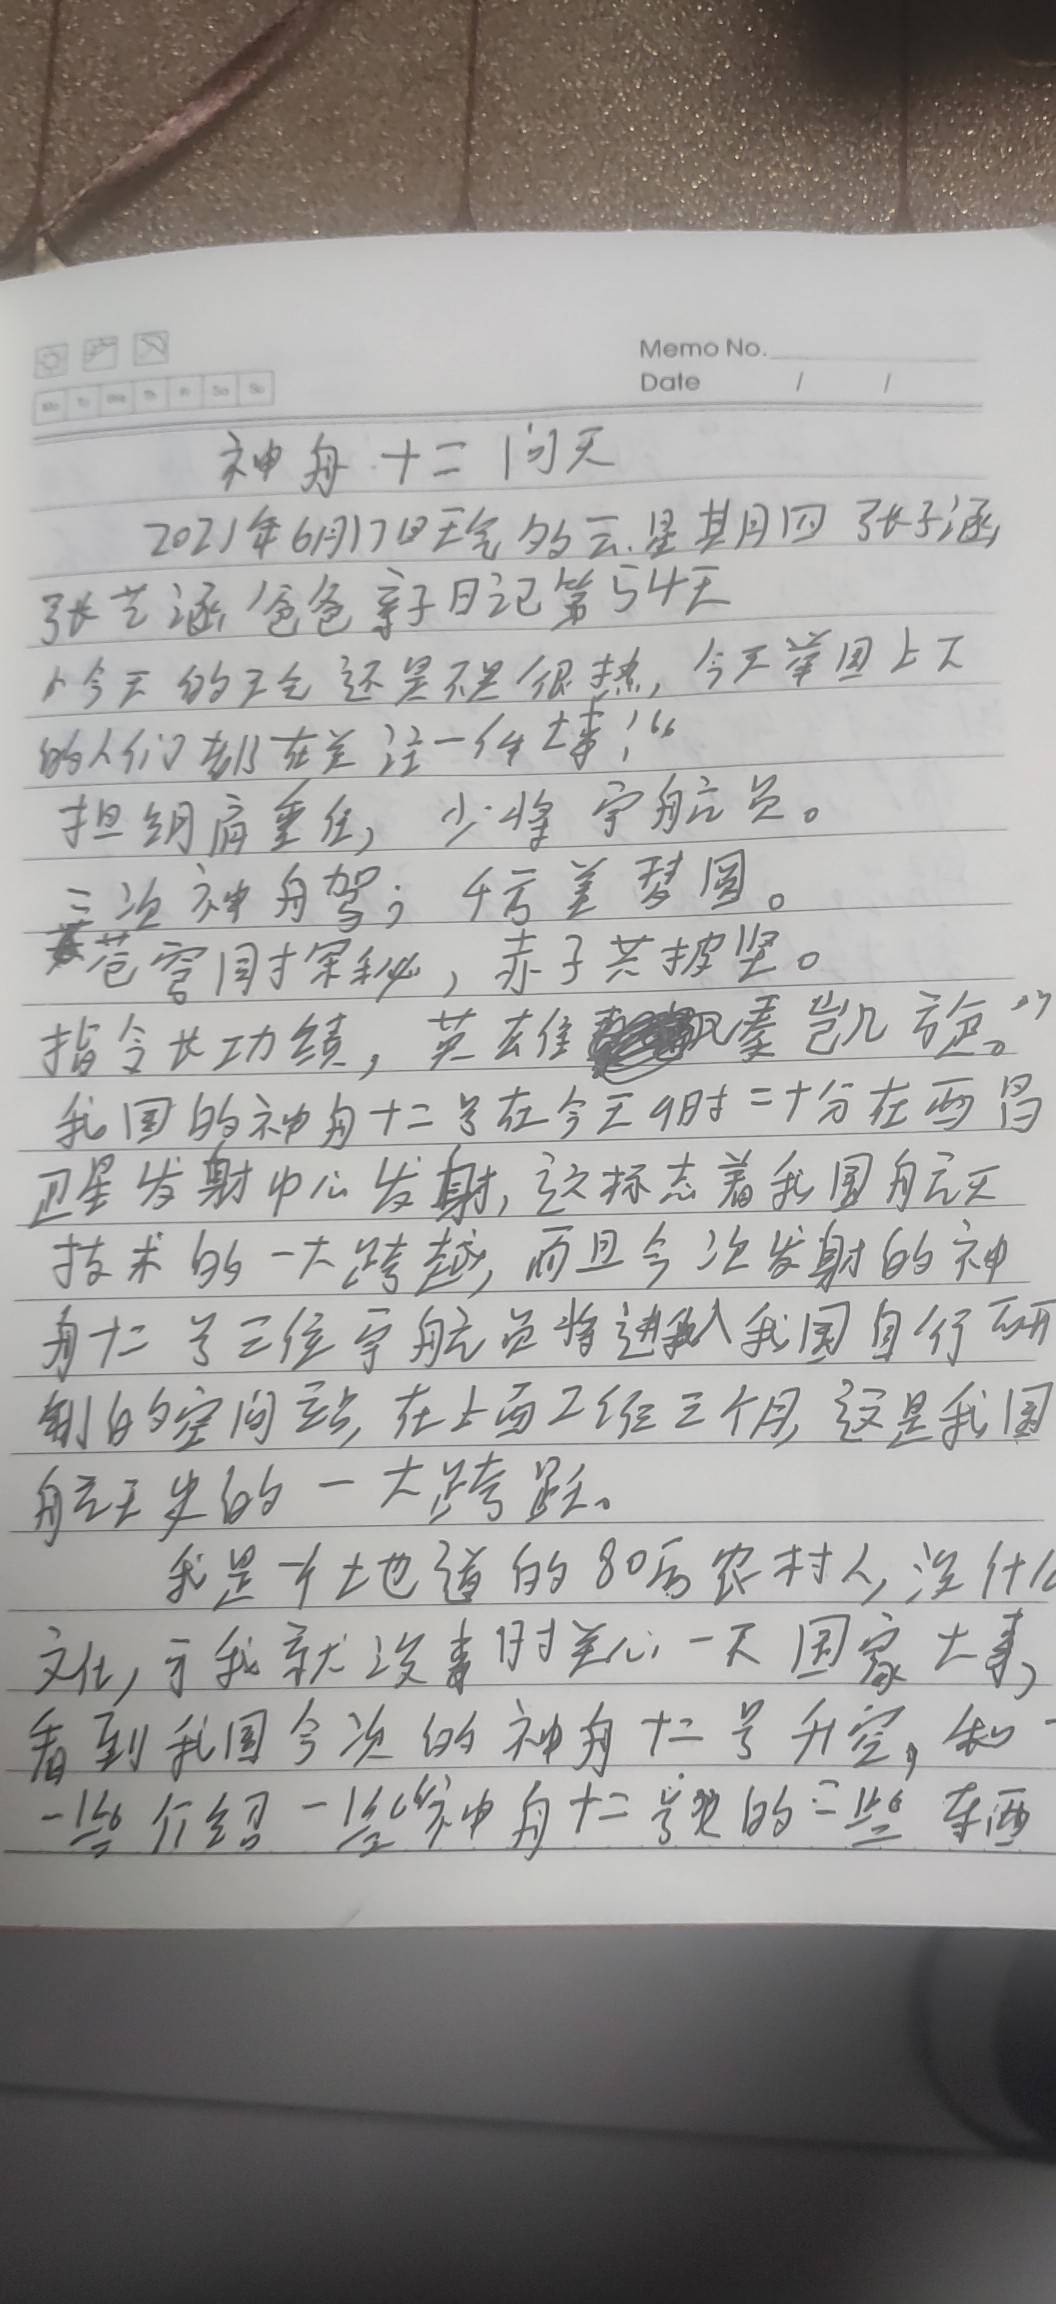 Memo No.
Date / /
Mo Tu We Th Fr Sa Su
神舟十二问天
2021年6月17日天气多云.星期四 张子涵
张艺涵爸爸亲子日记第54天
今天的天气还是不是很热,今天举国上下
的人们都在关注一件大事;“
担纲肩重任, 少将宇航员。
三次神舟驾; 4亏美梦圆。
苍穹同探秘, 赤子共披坚。
指令长功绩, 英雄奏凯旋。”
我国的神舟十二号在今天9时二十分在西昌
卫星发射中心发射,这标志着我国航天
技术的一大跨越,而且今次发射的神
舟十二号三位宇航员将进入我国自行研
制的空间站,在上面工作三个月,这是我国
航天史的一大跨跃。
我是个土地道的80后农村人,没什么
文化,于我就没事时关心一下国家大事,
看到我国今次的神舟十二号升空,和一
一些介绍一些神舟十二号的一些东西